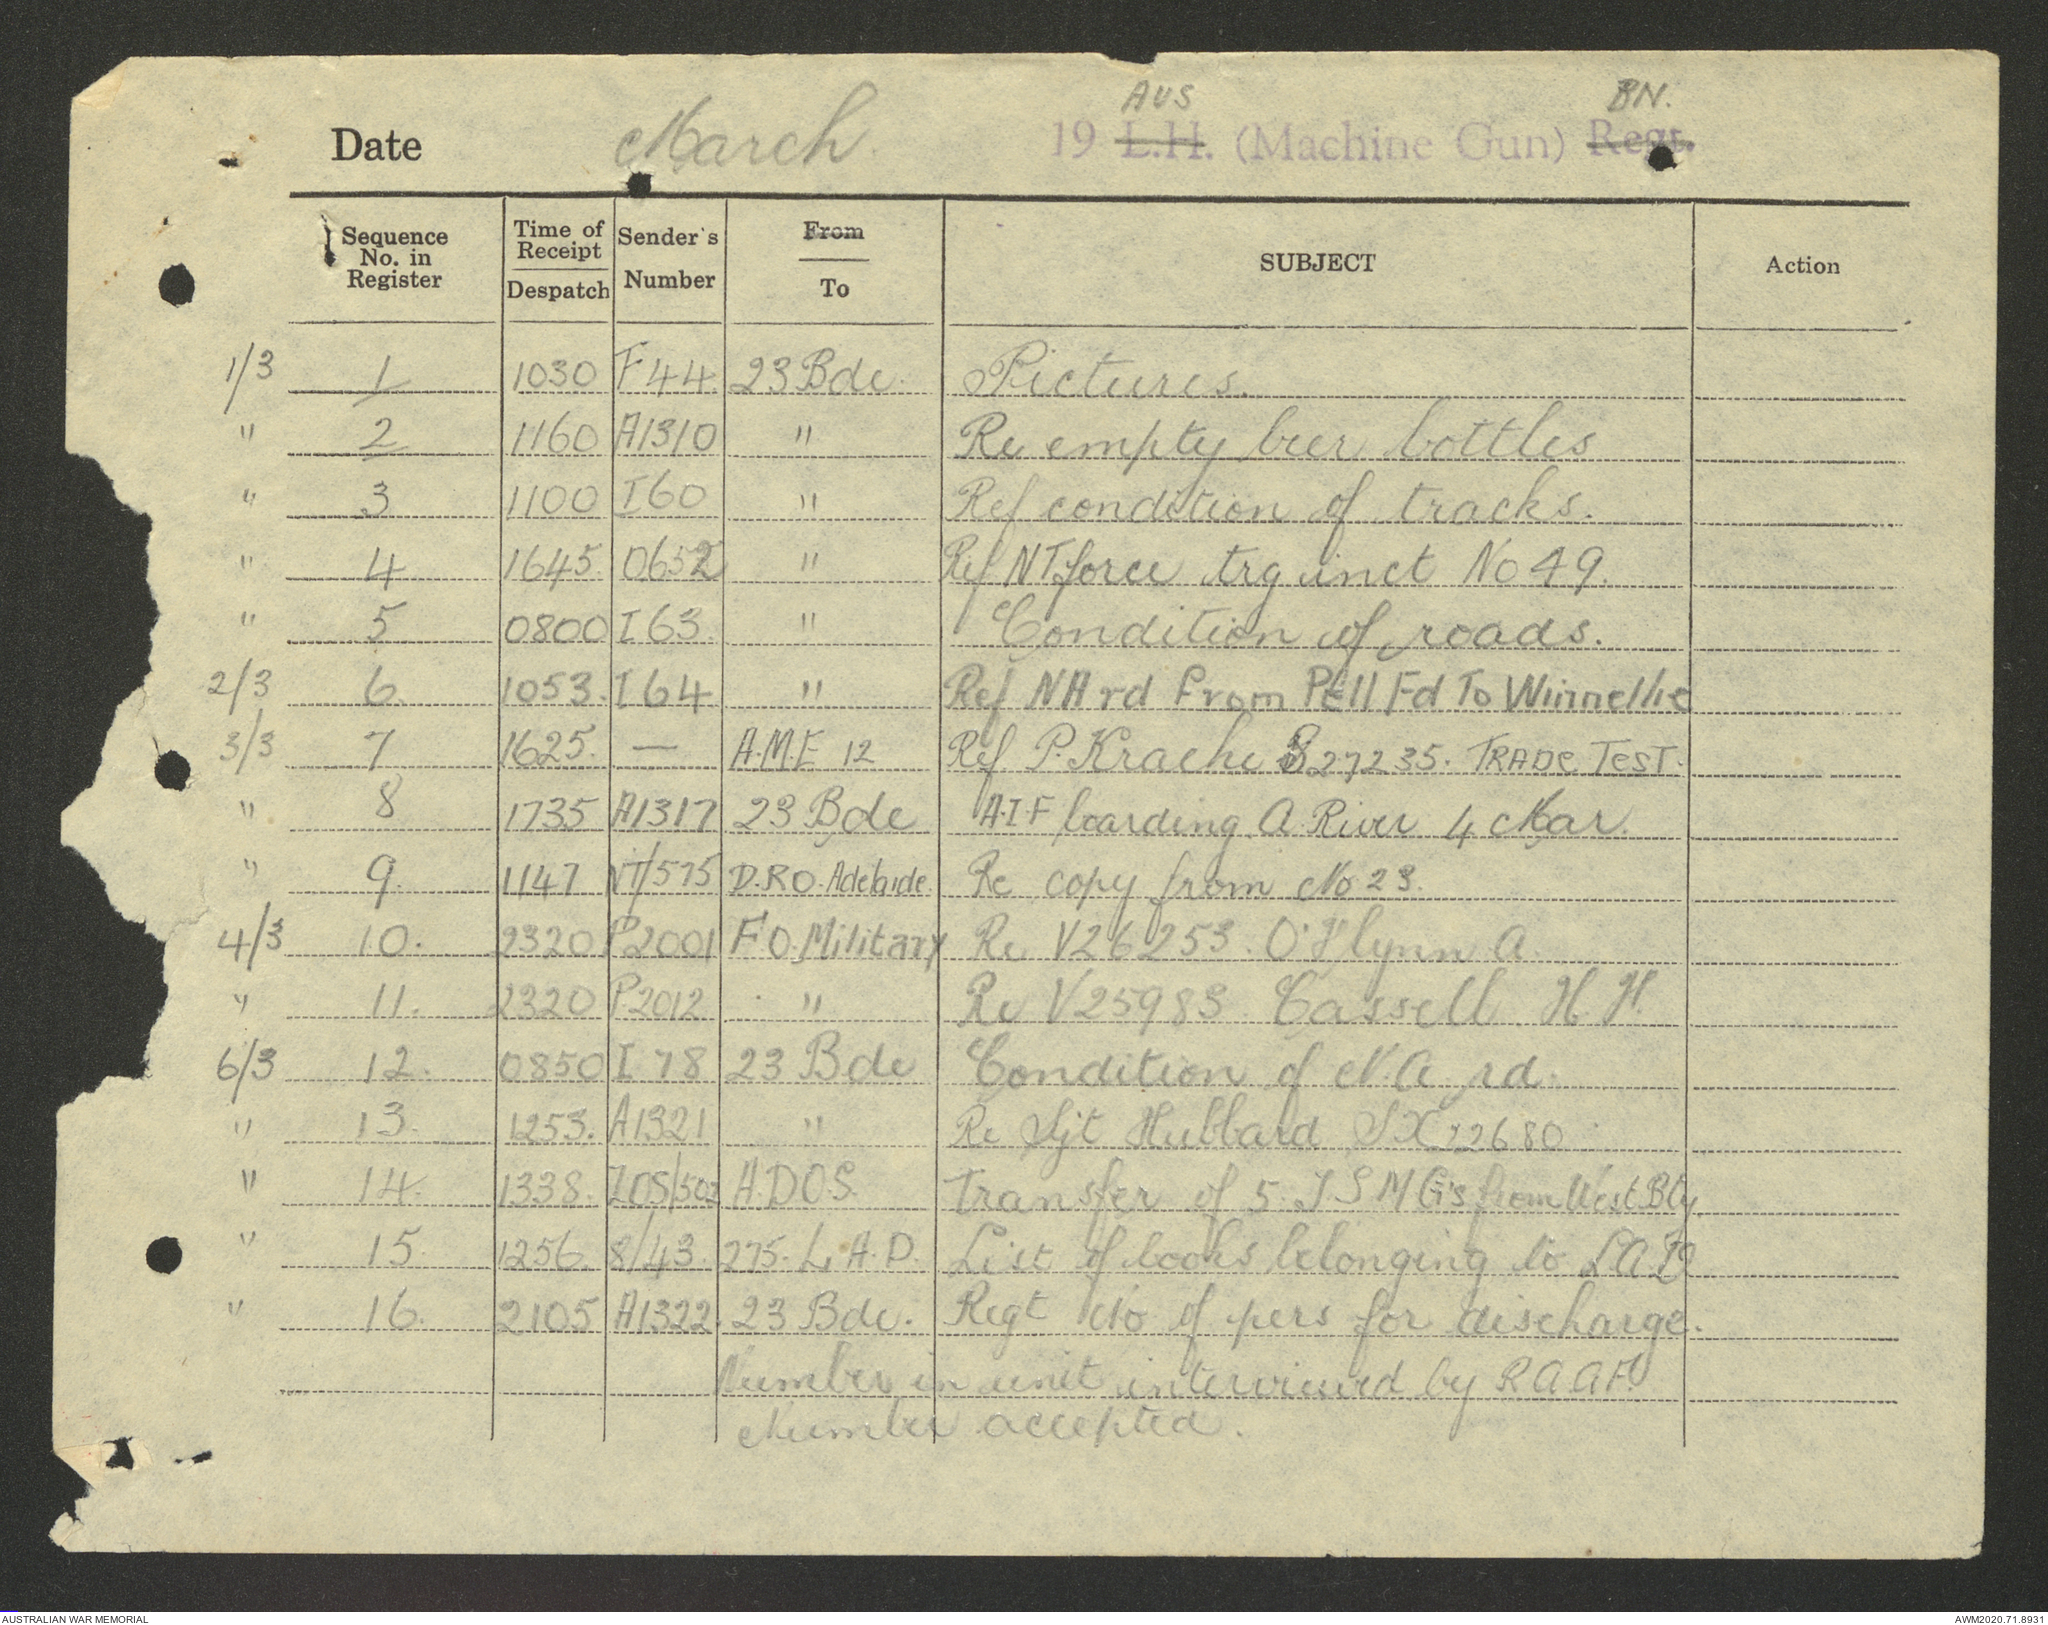 AUS BN.
Date March 19 L.H. (Machine Gun) Regt.
Sequence No. in Register | Time of Receipt Despatch | Sender's Number | From To | SUBJECT | Action
1/3 1 1030 F44 23 Bde. Pictures.
" 2 1160 A1310 " Re empty beer bottles
" 3 1100 I60 " Ref condition of tracks.
" 4 1645. 0652 " Ref NTforce trg inct No 49.
" 5 0800 I63. " Condition of roads.
2/3 6. 1053. I64 " Ref NA rd From Pell Fd To Winnellie
3/3 7 1625. — A.M.E 12 Ref P. Krache S27235. TRADE TEST.
" 8 1735 A1317 23 Bde A.I.F boarding A. River 4 Mar.
" 9. 1147 NT/575 D.R.O. Adelaide. Re copy from No 23.
4/3 10. 2320 P2001 F.O. Military Re V26253. O'Flynn A.
" 11. 2320 P.2012 " Re V25983. Cassell. H.H.
6/3 12. 0850 I 78 23 Bde Condition of N.A. rd.
" 13. 1253. A1321 " Re Sjt Hubbard SX22680
" 14. 1338. A.D.O.S. Transfer of 5. T.S.M.G's from West Bty.
" 15. 1256. 8/43. 275. L.A.D. List of books belonging to L.A.D
" 16. 2105 A1322. 23 Bde. Regt No of pers for discharge.
Number in unit interviewed by R.A.A.F.
Number accepted.
AUSTRALIAN WAR MEMORIAL
AWM2020.71.8931